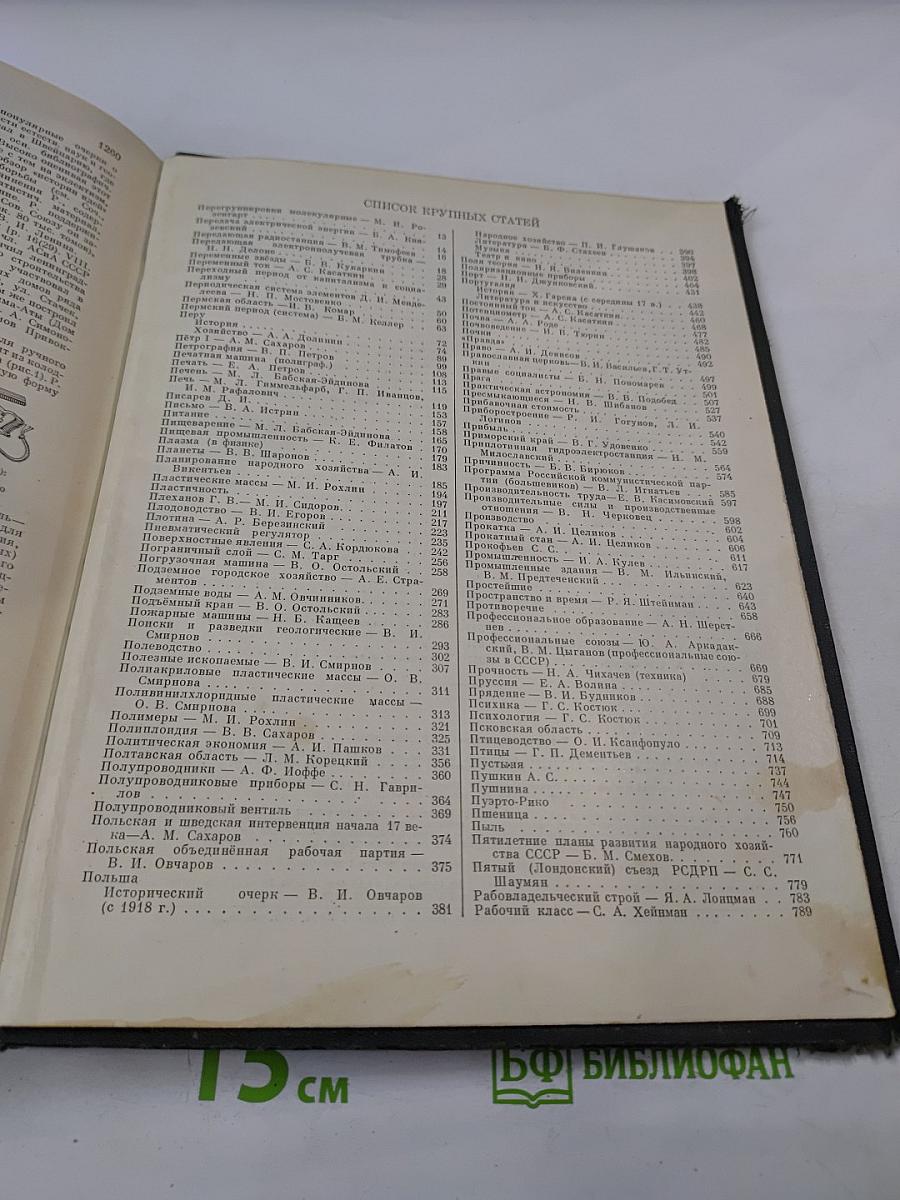 1260
СПИСОК КРУПНЫХ СТАТЕЙ
Перегруппировки молекулярные — М. И. Ро-
зенгарт . . . 13
Передача электрической энергии — Б. А. Кня-
зевский . . . 14
Передающая радиостанция — В. М. Тимофеев . . 16
Передающая электроннолучевая трубка —
Н. Н. Делоне . . . 18
Переменные звёзды — Б. В. Кукаркин . . . 28
Переменный ток — А. С. Касаткин . . . 29
Переходный период от капитализма к социа-
лизму . . . 43
Периодическая система элементов Д. И. Менде-
леева — Н. П. Мостовенко . . . 50
Пермская область — И. В. Комар . . . 60
Пермский период (система) — Б. М. Келлер . . 63
Перу
История . . . 72
Хозяйство — А. А. Долинин . . . 74
Пётр I — А. М. Сахаров . . . 89
Петрография — В. П. Петров . . . 99
Печатная машина (полиграф.) . . . 108
Печать — Е. А. Петров . . . 113
Печень — М. Л. Бабская-Эйдинова . . . 115
Печь — М. Л. Гиммельфарб, Г. П. Иванцов,
И. М. Рафалович . . . 119
Писарев Д. И. . . . 153
Письмо — В. А. Истрин . . . 157
Питание . . . 158
Пищеварение — М. Л. Бабская-Эйдинова . . . 165
Пищевая промышленность — К. Е. Филатов . . 170
Плазма (в физике) . . . 179
Планеты — В. В. Шаронов . . . 183
Планирование народного хозяйства — А. И.
Викентьев . . . 185
Пластические массы — М. И. Рохлин . . . 194
Пластичность . . . 197
Плеханов Г. В. — М. И. Сидоров . . . 211
Плодоводство — В. И. Егоров . . . 217
Плотина — А. Р. Березинский . . . 223
Пневматический регулятор . . . 235
Поверхностные явления — С. А. Кордюкова . . 242
Пограничный слой — С. М. Тарг . . . 256
Погрузочная машина — В. О. Остольский . . 258
Подземное городское хозяйство — А. Е. Стра-
ментов . . . 269
Подземные воды — А. М. Овчинников . . . 271
Подъёмный кран — В. О. Остольский . . . 283
Пожарные машины — Н. Б. Кащеев . . . 286
Поиски и разведки геологические — В. И.
Смирнов . . . 293
Полеводство . . . 302
Полезные ископаемые — В. И. Смирнов . . . 307
Полиакриловые пластические массы — О. В.
Смирнова . . . 311
Поливинилхлоридные пластические массы —
О. В. Смирнова . . . 313
Полимеры — М. И. Рохлин . . . 321
Полиплоидия — В. В. Сахаров . . . 325
Политическая экономия — А. И. Пашков . . . 331
Полтавская область — Л. М. Корецкий . . . 356
Полупроводники — А. Ф. Иоффе . . . 360
Полупроводниковые приборы — С. Н. Гаври-
лов . . . 364
Полупроводниковый вентиль . . . 369
Польская и шведская интервенция начала 17 ве-
ка — А. М. Сахаров . . . 374
Польская объединённая рабочая партия —
В. И. Овчаров . . . 375
Польша
Исторический очерк — В. И. Овчаров
(с 1918 г.) . . . 381
Народное хозяйство — П. И. Глушаков . . 390
Литература — Б. Ф. Стахеев . . . 394
Музыка . . . 397
Театр и кино . . . 398
Поля теория — И. Я. Визенини
Поляризационные приборы . . . 402
Порт — Н. Н. Джунковский . . . 404
Португалия . . . 431
История — Х. Гарсиа (с середины 17 в.) . . 438
Литература и искусство . . . 442
Постоянный ток — А. С. Касаткин . . . 460
Потенциометр — А. С. Касаткин . . . 468
Почва — А. А. Роде . . . 477
Почвоведение — И. В. Тюрин . . . 482
Почки . . . 485
«Правда» . . . 490
Право — А. И. Денисов . . . 492
Православная церковь — В. И. Васильев, Г. Т. Ут-
кин . . . 497
Правые социалисты — Б. Н. Пономарев . . . 499
Прага . . . 501
Практическая астрономия — В. В. Подобед . . 507
Пресмыкающиеся — Н. В. Шибанов . . . 527
Прибавочная стоимость . . . 537
Приборостроение — Р. И. Гогунов, Л. И.
Логинов . . . 540
Прибыль . . . 542
Приморский край — В. Г. Удовенко . . . 559
Приплотинная гидроэлектростанция — Н. М.
Милославский . . . 564
Причинность — Б. В. Бирюков . . . 574
Программа Российской коммунистической пар-
тии (большевиков) — В. Л. Игнатьев . . . 585
Производительность труда — Е. В. Касимовский 597
Производительные силы и производственные
отношения — В. Н. Черковец . . . 598
Производство . . . 602
Прокатка — А. И. Целиков . . . 604
Прокатный стан — А. И. Целиков . . . 606
Прокофьев С. С. . . . 611
Промышленность — И. А. Кулев . . . 617
Промышленные здания — В. М. Ильинский,
В. М. Предтеченский . . . 623
Простейшие . . . 640
Пространство и время — Р. Я. Штейнман . . . 643
Противоречие . . . 658
Профессиональное образование — А. Н. Шерст-
нев . . . 666
Профессиональные союзы — Ю. А. Аркадак-
ский, В. М. Цыганов (профессиональные сою-
зы в СССР) . . . 669
Прочность — Н. А. Чихачев (техника) . . . 679
Пруссия — Е. А. Волина . . . 685
Прядение — В. И. Будников . . . 688
Психика — Г. С. Костюк . . . 699
Психология — Г. С. Костюк . . . 701
Псковская область . . . 709
Птицеводство — О. И. Ксанфопуло . . . 713
Птицы — Г. П. Дементьев . . . 714
Пустыня . . . 737
Пушкин А. С. . . . 744
Пушнина . . . 747
Пуэрто-Рико . . . 750
Пшеница . . . 756
Пыль . . . 760
Пятилетние планы развития народного хозяй-
ства СССР — Б. М. Смехов . . . 771
Пятый (Лондонский) съезд РСДРП — С. С.
Шаумян . . . 779
Рабовладельческий строй — Я. А. Лонцман . . 783
Рабочий класс — С. А. Хейнман . . . 789
15 см
БФ БИБЛИОФАН